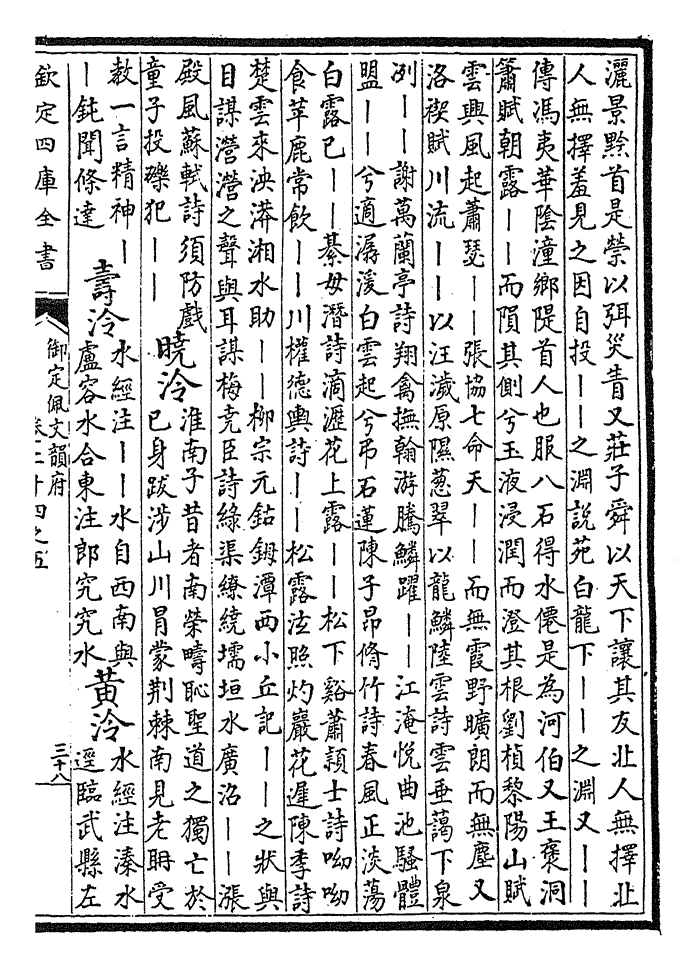 灑景黔首是榮以弭災眚又莊子舜以天下讓其友北人無擇北
人無擇羞見之因自投丨丨之淵說苑白龍下丨丨之淵又丨丨
傳馮夷華陰潼鄉隄首人也服八石得水僊是為河伯又王褒洞
簫賦朝露丨丨而隕其側兮玉液浸潤而澄其根劉楨黎陽山賦
雲興風起蕭瑟丨丨張協七命天丨丨而無霞野曠朗而無塵又
洛禊賦川流丨丨以汪濊原隰蔥翠以龍鱗陸雲詩雲垂藹下泉
冽丨丨謝萬蘭亭詩翔禽撫翰游騰鱗躍丨丨江淹悅曲池騷體
盟丨丨兮適潺湲白雲起兮弔石蓮陳子昂脩竹詩春風正淡蕩
白露已丨丨綦毋潛詩滴瀝花上露丨丨松下谿蕭頴士詩呦呦
食苹鹿常飲丨丨川權德輿詩丨丨松露泫照灼巖花遲陳季詩
楚雲來泱漭湘水助丨丨柳宗元鈷鉧潭西小丘記丨丨之狀與
目謀瀯瀯之聲與耳謀梅堯臣詩綠渠繚繞壖垣水廣沼丨丨漲
殿風蘇軾詩須防戲
童子投礫犯丨丨
曉泠
淮南子昔者南榮疇恥聖道之獨亡於
已身跋涉山川冒蒙荊棘南見老聃受
教一言精神丨
丨鈍聞條達
壽泠
水經注丨丨水自西南與
盧容水合東注郎究究水
黃泠
水經注溱水
逕臨武縣左
欽定四庫全書
御定佩文韻府
卷二十四之五
三十八